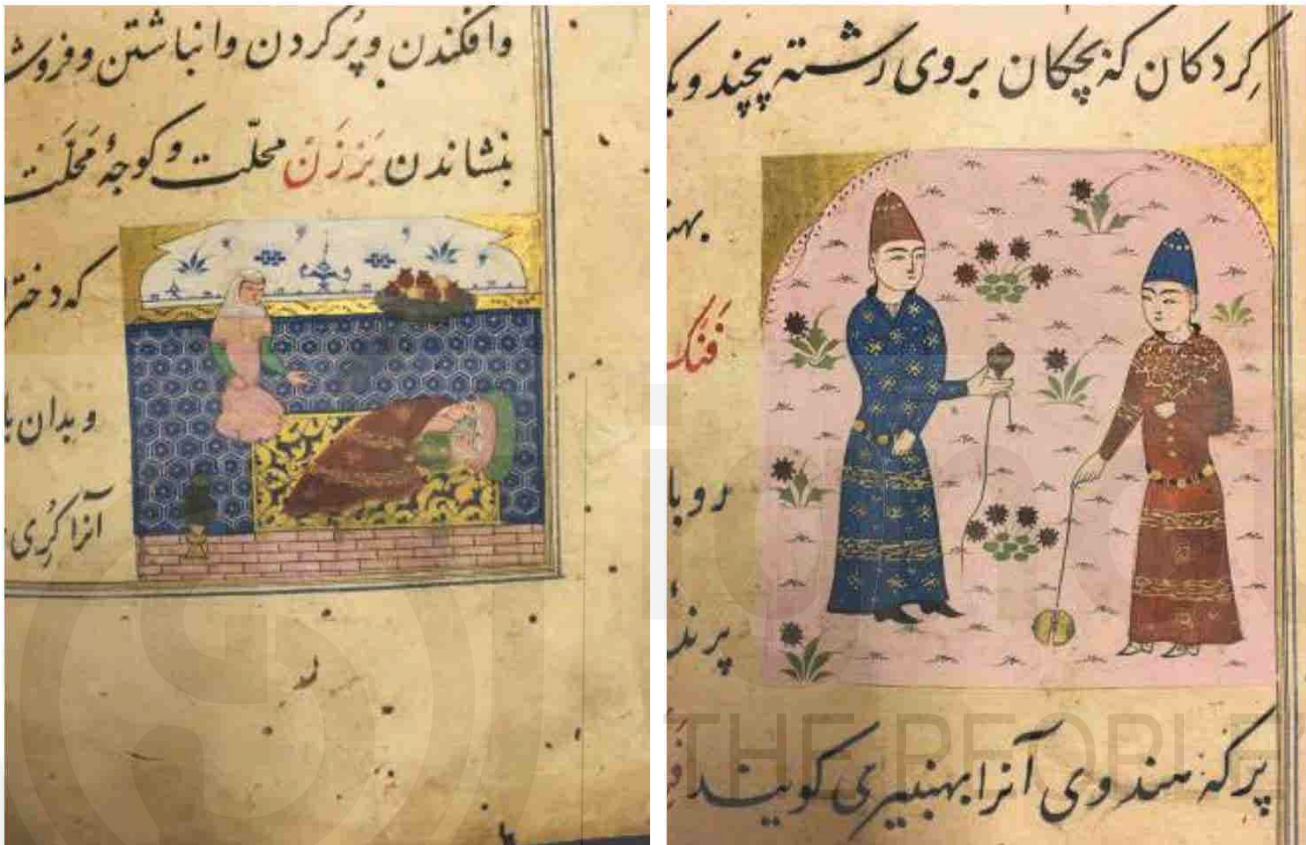 وافکندن و پُر کردن وانباشتن وفروش
بنشاندن بَرزَن محلّت و کوجهٔ مَحلّت
که دختر
وبدان
آنرا کُری
کِردکان که بچکان بروی رشته پیچند و
بهن
فنک
روبا
پرند
پرکه هندوی آنرا بهنبیری کویند
THE PEOPLE